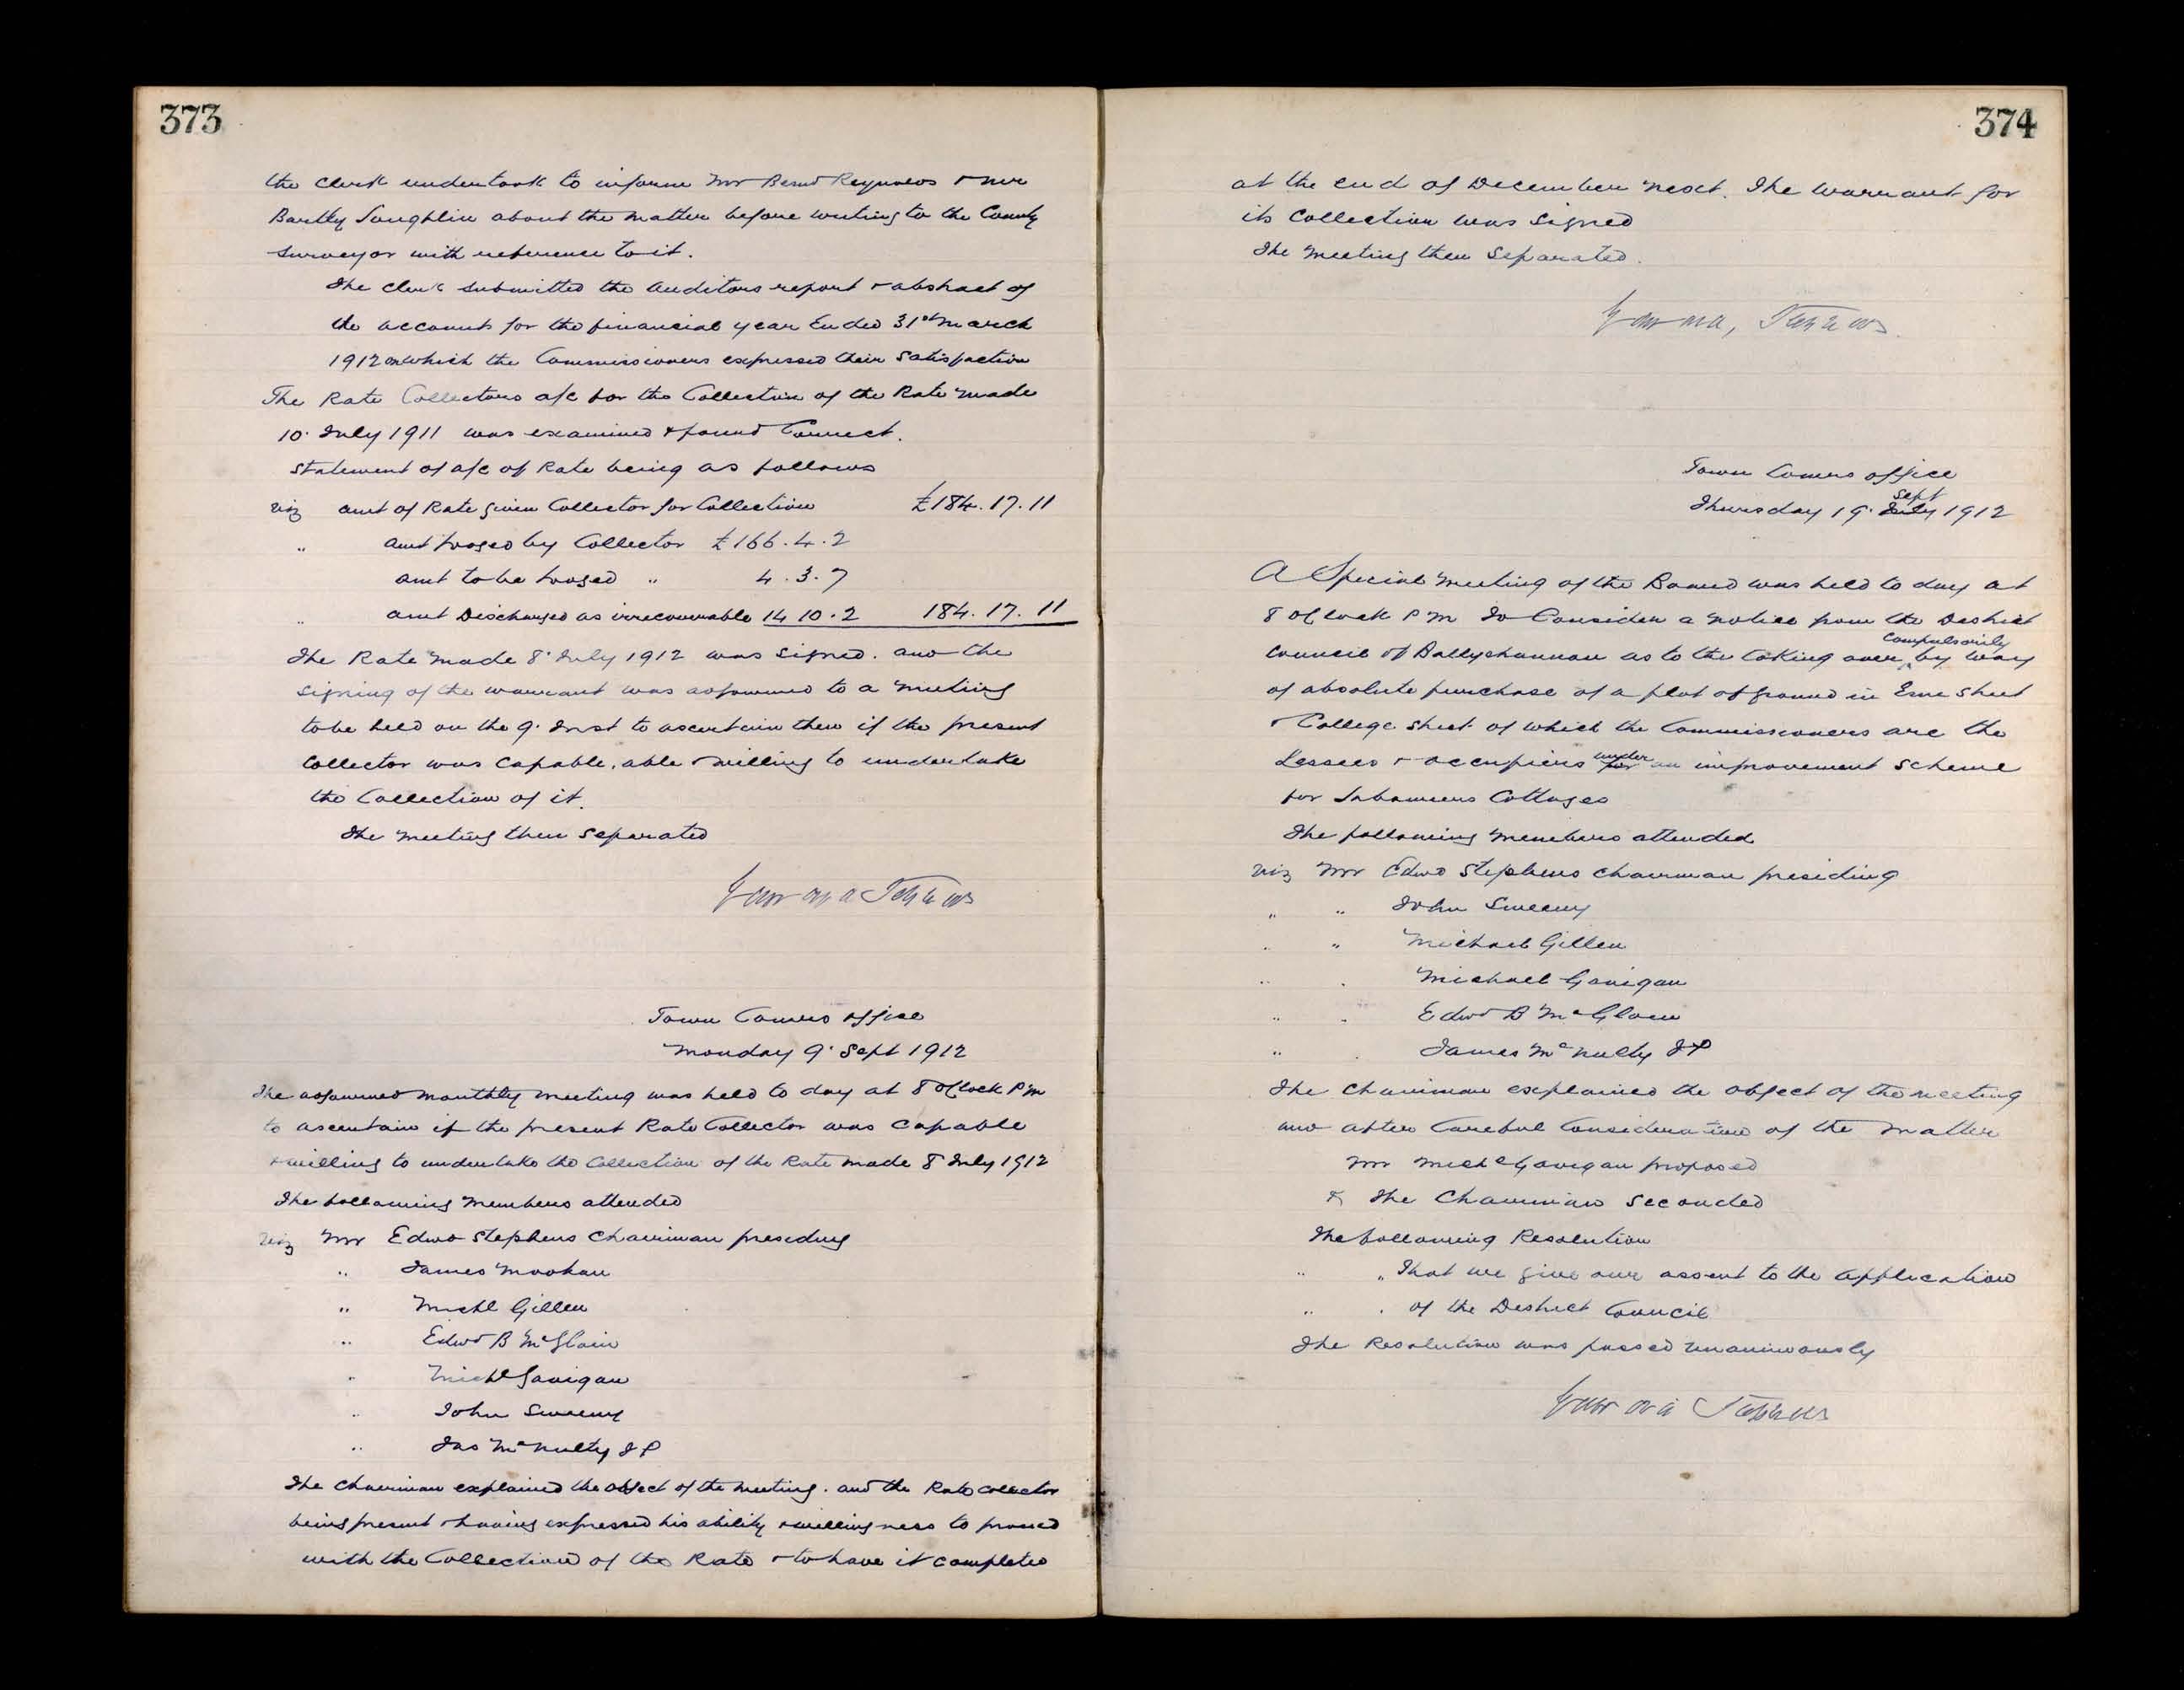 373
the Clerk undertook to inform Mr Bernd Reynolds & Mr
Bartly Loughlin about the matter before writing to the County
Surveyor with reference to it.
The Clerk submitted the Auditors report & abstract of
the accounts for the financial year Ended 31st March
1912 on which the Commissioners expressed their Satisfaction
The Rate Collectors a/c for the Collection of the Rate made
10. July 1911 was examined & found Correct.
Statement of a/c of Rate being as follows
viz amt of Rate given Collector for Collection £184.17.11
" amt lodged by Collector £166.4.2
amt to be lodged " 4.3.7
" amt Discharged as irrecoverable 14 10.2 184.17.11
The Rate made 8. July 1912 was signed. and the
signing of the warrant was adjourned to a meeting
to be held on the 9. Inst to ascertain then if the present
Collector was Capable, able & willing to undertake
the Collection of it.
The meeting then separated
Edward Stephens
Town Comrs office
Monday 9. Sept 1912
The adjourned monthly meeting was held to day at 8 Oclock P.M
to ascertain if the present Rate Collector was Capable
& willing to undertake the Collection of the Rate made 8 July 1912
The following members attended
viz Mr Edwd Stephens Chairman presiding
" James Moohan
" Michl Gillen
" Edwd B McGloin
" Michl Gavigan
" John Sweeny
" Jas McNulty JP
The Chairman explained the object of the meeting. and the Rate Collector
being present & having expressed his ability & willingness to proceed
with the Collection of the Rate & to have it completed
374
at the end of December next. The Warrant for
its Collection was Signed
The meeting then Separated.
Edward Stephens
Town Comrs office
Sept
Thursday 19. July 1912
A Special Meeting of the Board was held to day at
8 Oclock P M To Consider a notice from the District
Compulsorily
Council of Ballyshannon as to the taking over ^ by way
of absolute purchase of a plot of ground in Erne Street
& College Street of which the Commissioners are the
under
Lessees & occupiers for an improvement Scheme
for Labourers Cottages
The following Members attended
viz Mr Edwd Stephens Chairman presiding
" " John Sweeny
" " Michael Gillen
" " Michael Gavigan
" " Edwd B McGloin
" " James McNulty JP
The Chairman explained the object of the meeting
and after Careful Consideration of the matter
Mr Michl Gavigan proposed
& The Chairman Seconded
The following Resolution
" "That we give our assent to the application
" " of the District Council
The Resolution was passed unanimously
Edward Stephens